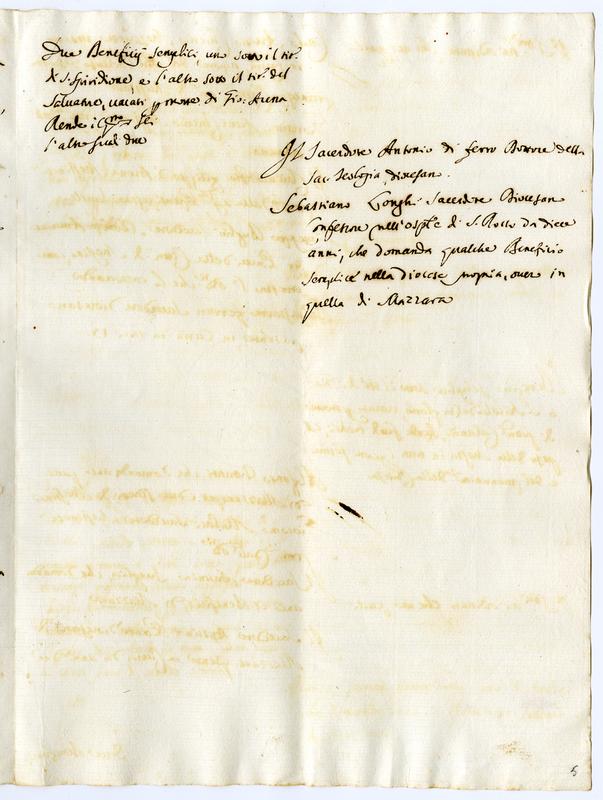 Due Beneficij semplici, uno sotto il tit.
di S. Spiridione, e l'altro sotto il tit. del
Salvatore, vacati p morte di Gio: Arena
Rende il p.mo sc. sei
l'altro scudi due
Il Sacerdote Antonio di ferro Dottore della
Sac. Teologia, diocesan.
Sebastiano Conghi Sacerdote Diocesan
Confessore nell'ospl.e di S. Rocco da diece
anni, che domanda qualche Beneficio
semplice nella diocese propria, over in
quella di Mazzara
5